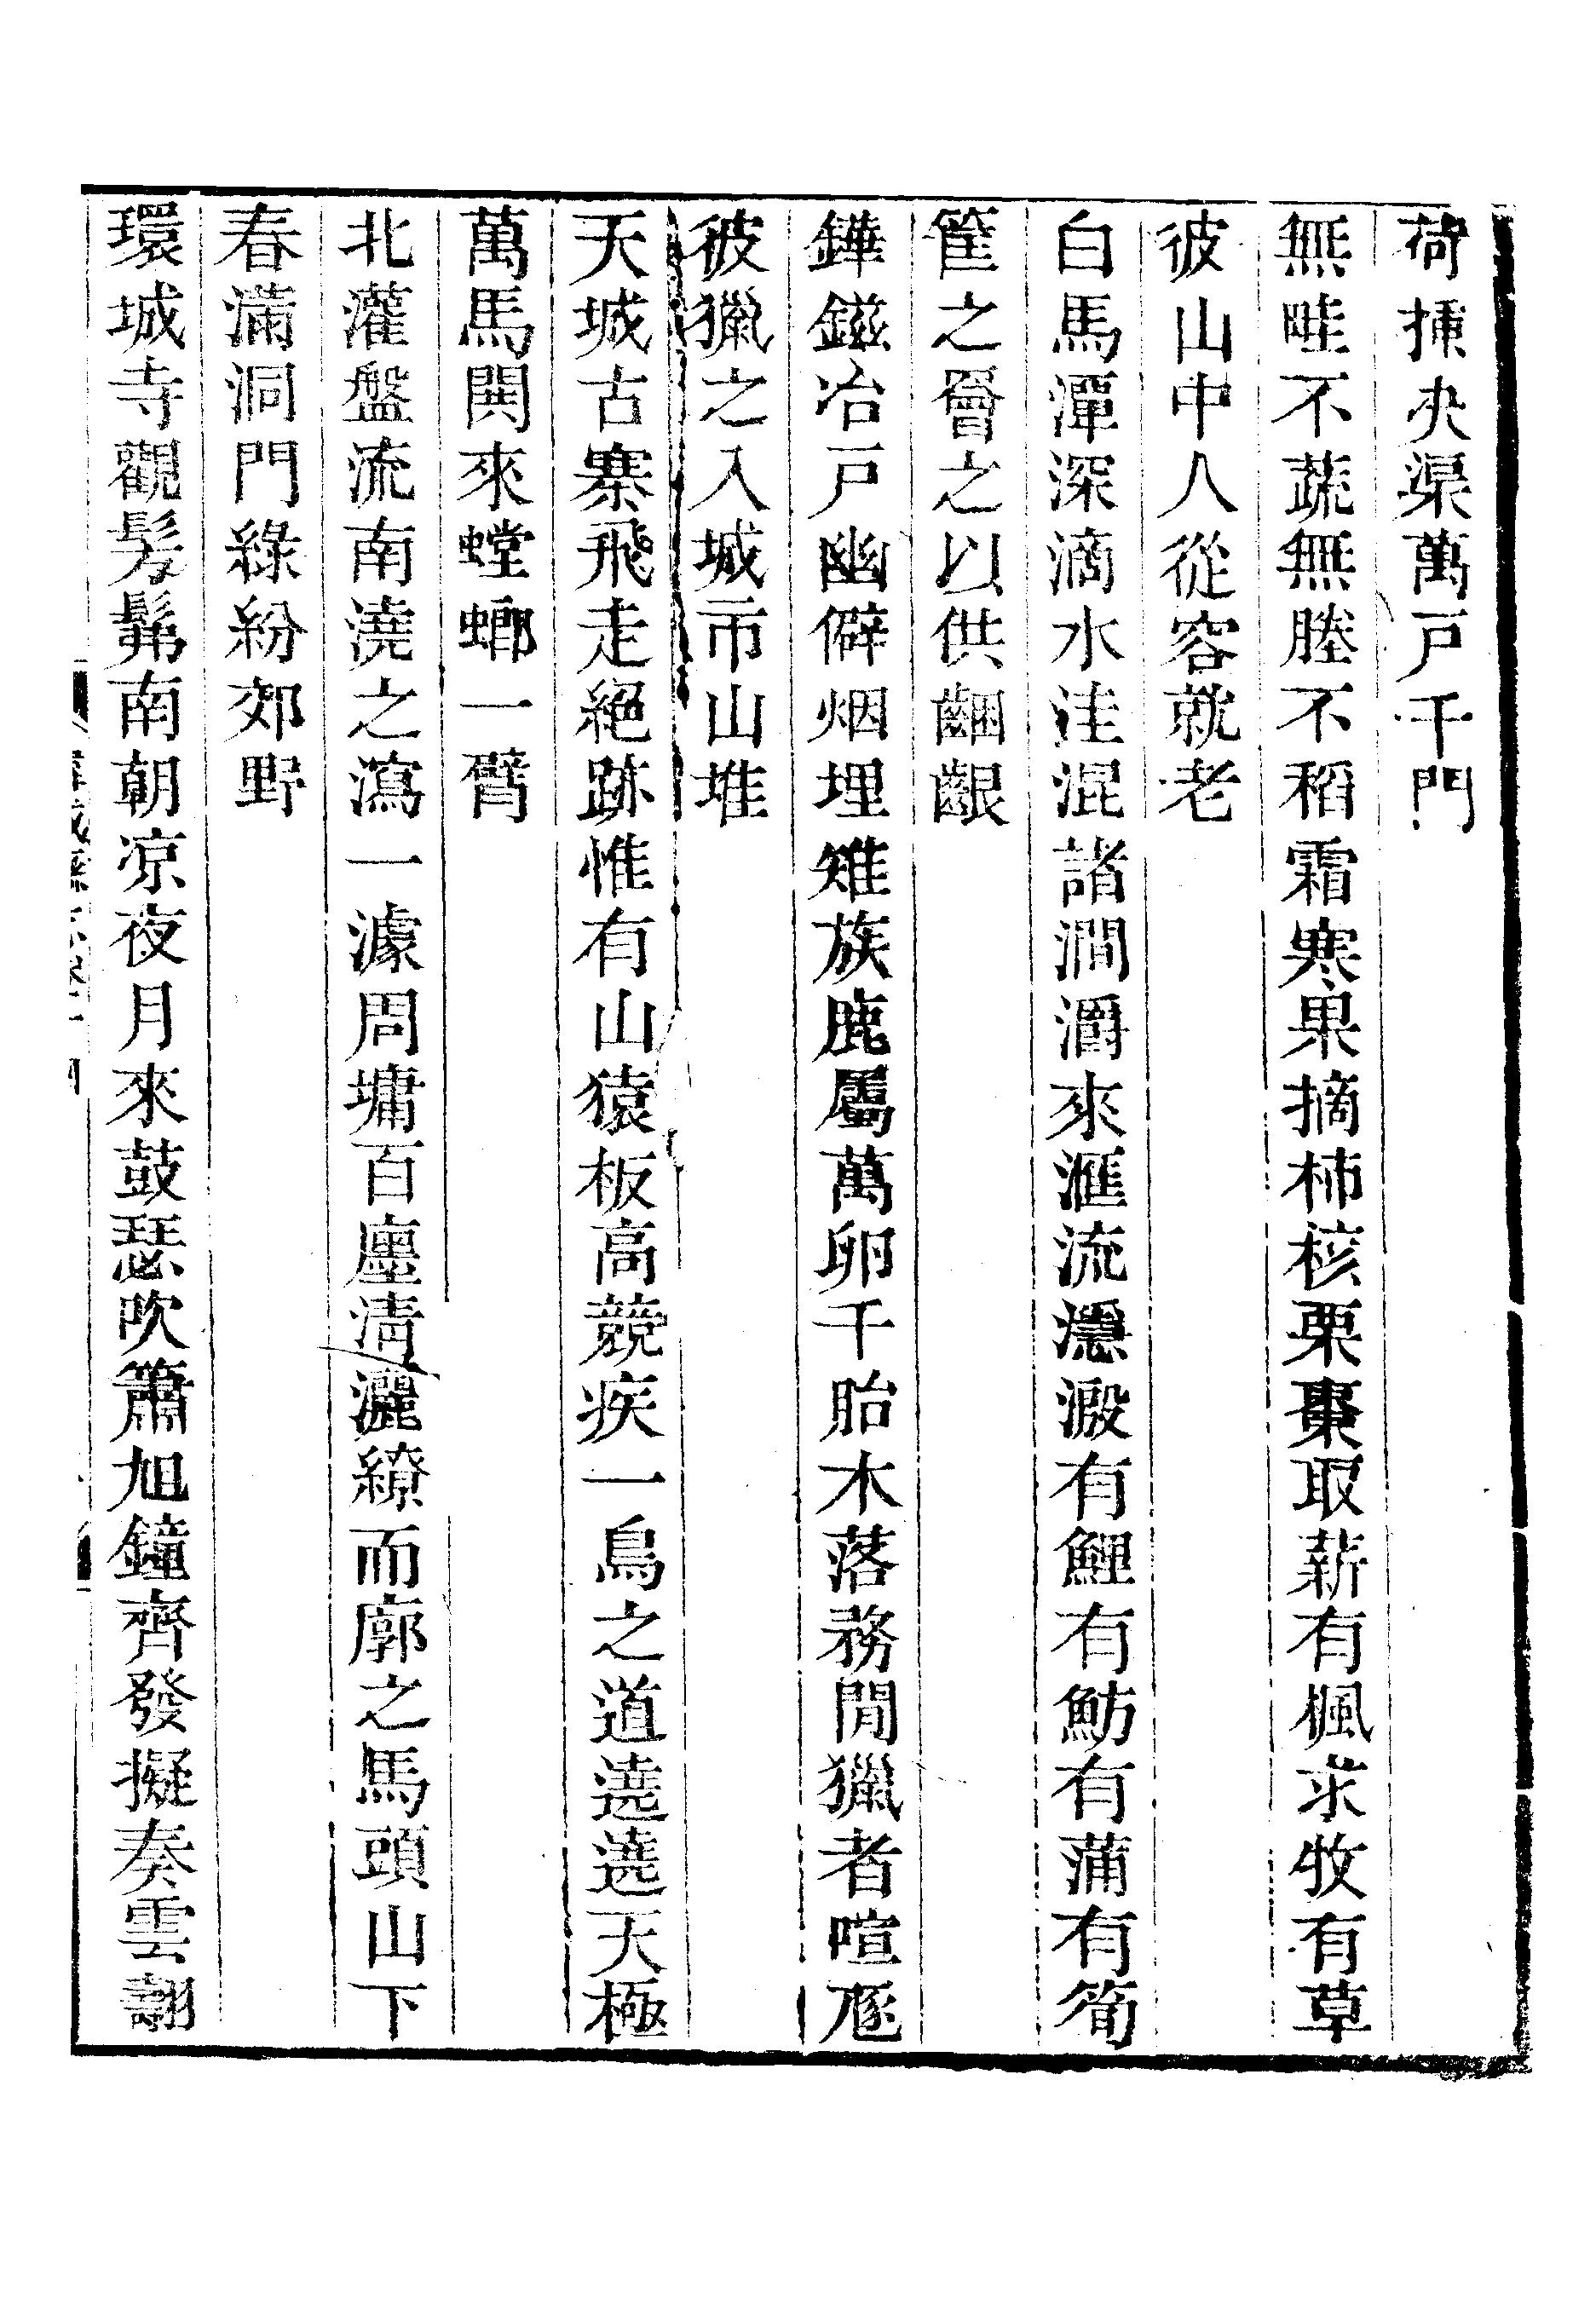 荷揷决渠萬戸千門
無畦不蔬無塍不稻霜寒果摘柿核栗棗取薪有楓求牧有草
彼山中人從容就老
白馬潭深滴水洼混諸澗灂來滙流濦澱有鯉有魴有蒲有筍
筐之罾之以供齫齦
鏵鎡冶戸幽僻烟埋雉族鹿屬萬卵千胎木落務閒獵者喧豗
彼獵之入城市山堆
天城古寨飛走絕跡惟有山猿板高競疾一鳥之道遶遶天極
萬馬関來螳螂一臂
北灌盤流南澆之瀉一澽周墉百廛淸灑繚而廓之馬頭山下
春滿洞門綠紛郊野
環城寺觀髣髴南朝凉夜月來鼓瑟吹簫旭鐘齊發擬奏雲翿